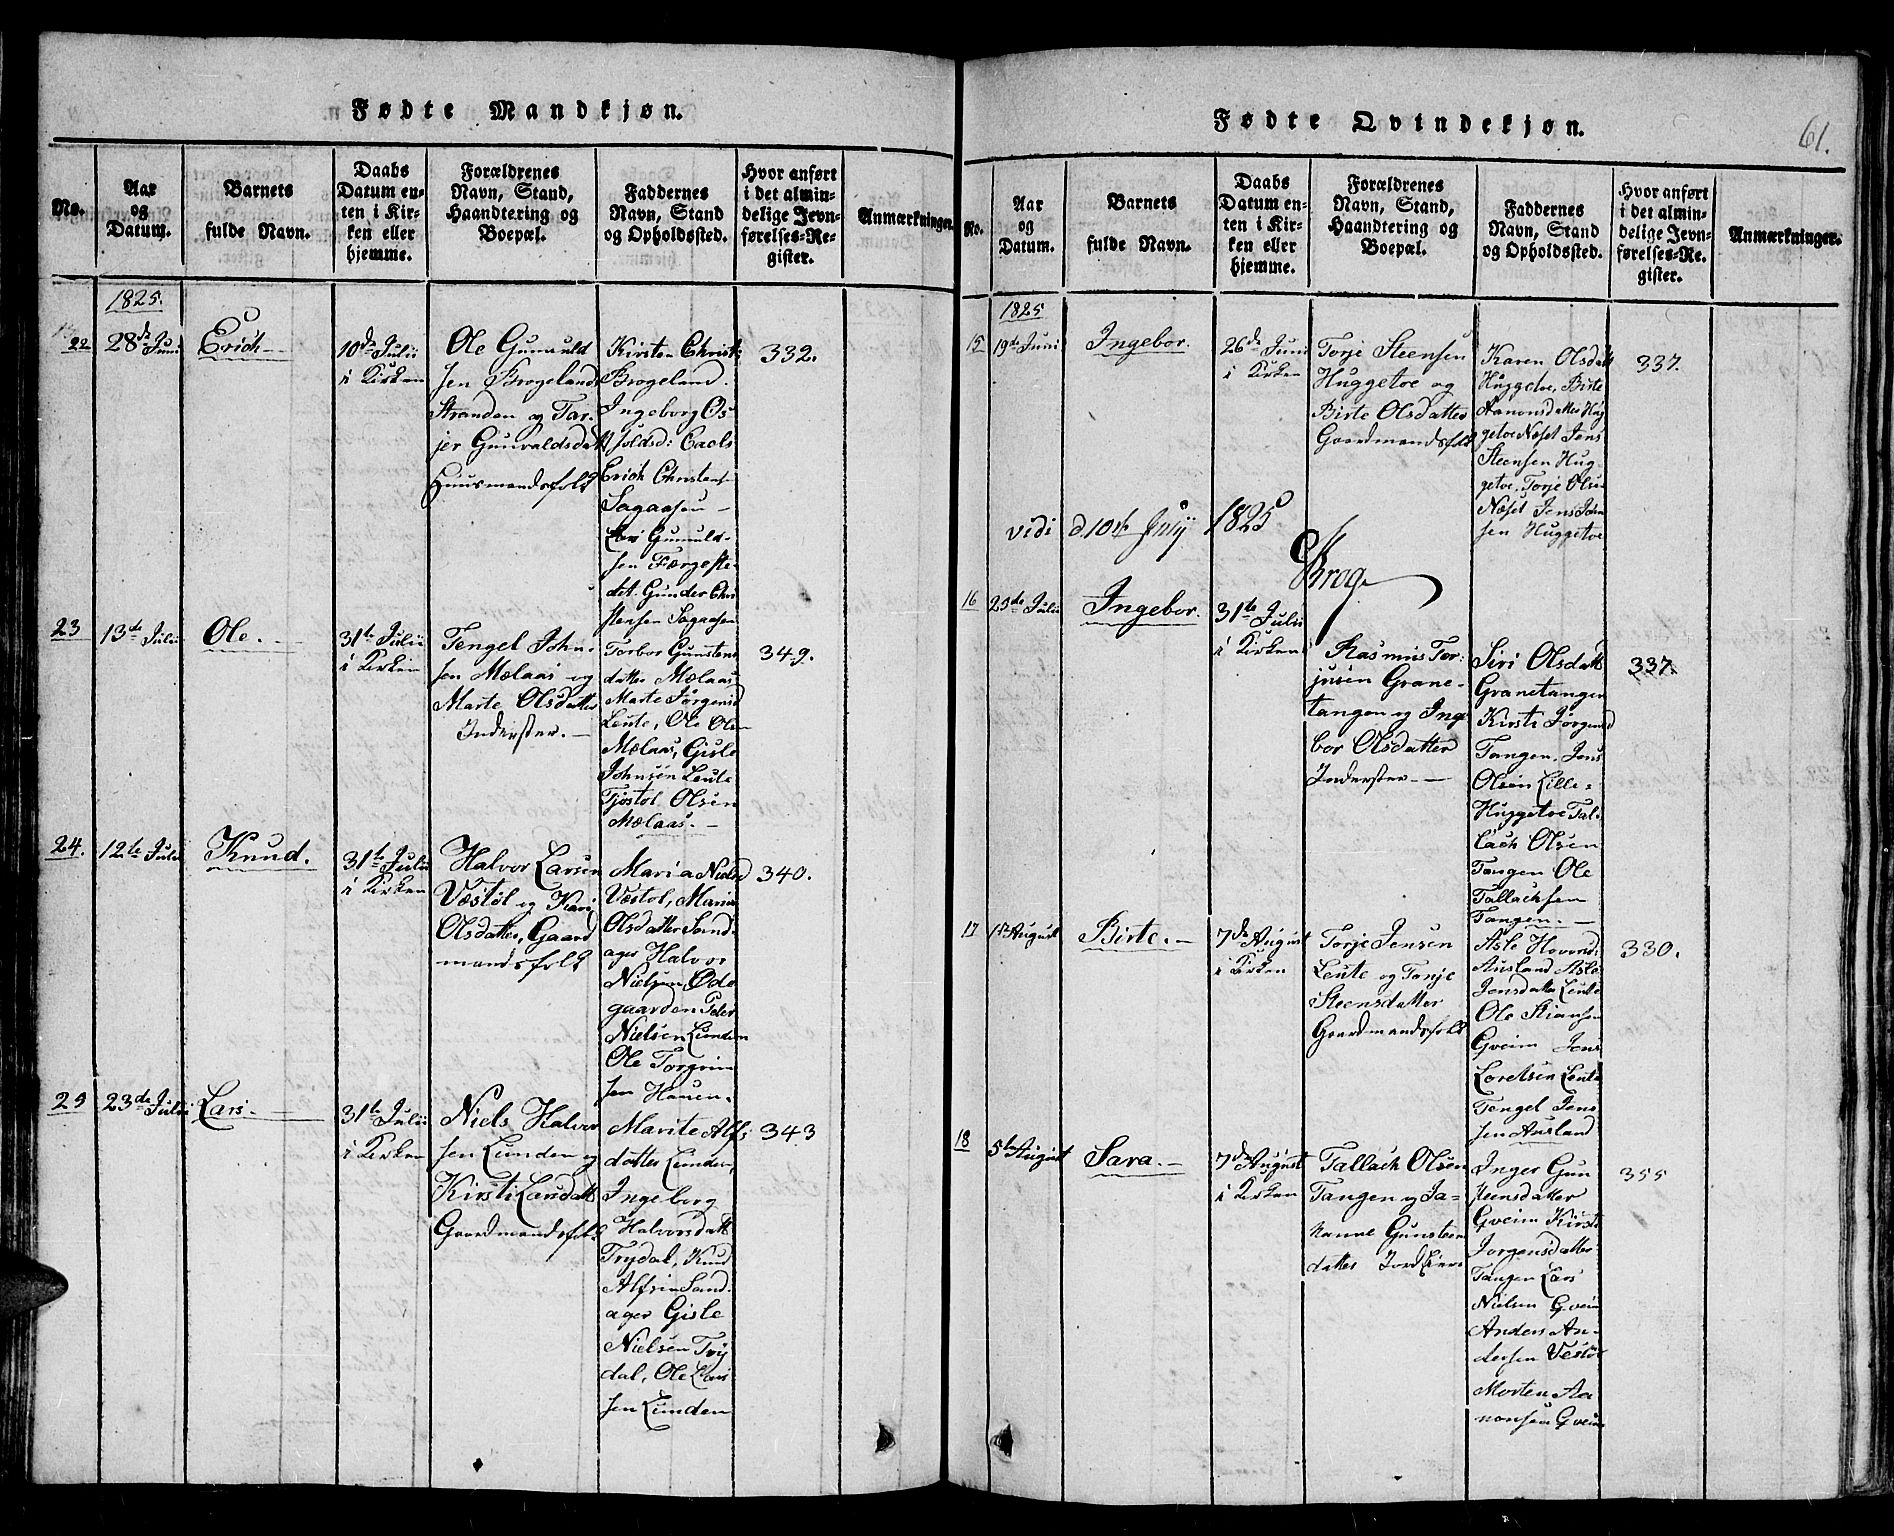 Fødte Mandkjøn.
No.
Aar
og
Datum.
Barnets
fulde Navn.
Daabs
Datum en-
ten i Kir-
ken eller
hjemme.
Forældrenes
Navn, Stand,
Haandtering og
Boepæl.
Faddernes
Navn, Stand
og Opholdssted.
Hvor anført
i det almin-
delige Jevn-
førelses-Re-
gister.
Anmærkninger.
1825.
22
28de Juni
Erich
10de Julii
i Kirken
Ole Gunuuld
sen Brogelands
Stranden og Tar-
jer Gunvaldsdatt
Huusmandsfolk
Kirsten Christ:
Brogeland.
Ingeborg Os
Erich Christens
Sagaasen
Gunuuld-
sen Færgeste-
det. Gunder Chri
stensen Sagaasen
332.
23
13de Julii
Ole.
31te Julii
i Kirken
Tengel John-
sen Mælaas og
Marte Olsdatter
Inderster.
Torbor Gunstens
datter Mælaas
Marte Jörgensd
Leute, Ole Ols
Mælaas, Gisle
Johnsen Leute
Tjöstol Olsen
Mælaas.
349.
24.
12te Julii
Knud.
31te Julii
i Kirken
Halvor Larsen
Væstöl og Kari
Olsdatter, Gaard
mandsfolk
Maria Nielsd
Væstol, Maria
Olsdatter Sand-
ager Halvor
Nielsen Öde
gaarden Peter
Nielsen Lunden
Ole Torgrim
sen Hauen.
340.
25
23de Julii
Lars.
31te Julii
i Kirken
Niels Halvor
sen Lunden og
Kirsti Larsdatt
Gaardmandsfolk
Marite Alfs
datter Lunden,
Ingeborg
Halvorsdatt
Trydal, Knud
Alfsen Sand-
ager Gisle
Nielsen Try
dal, Ole Lars
sen Lunden
343
Fødte Qvindekjøn.
61.
No.
Aar
og
Datum.
Barnets
fulde Navn.
Daabs
Datum en-
ten i Kir-
ken eller
hjemme.
Forældrenes
Navn, Stand,
Haandtering og
Boepæl.
Faddernes
Navn, Stand
og Opholdssted.
Hvor anført
i det almin-
delige Jevn-
førelses-Re-
gister.
Anmærkninger.
1825
15
19de Juni
Ingebor.
26de Juni
i Kirken
Torje Steensen
Huggetoe og
Birte Olsdatter
Gaardmandsfolk
Karen Olsdatt
Huggetoe, Birte
Aanonsdatter Hug
getoe Næset Jens
Steensen Hug-
getoe, Torje Olse
Næset Jens Jörn
sen Huggetoe
337.
vidi d 10de July 1825
Krog
16
23de Julii
Ingebor.
31te Julii
i Kirken
Rasmus Ter-
jusen Grane-
tangen og Inge
bor Olsdatter
Inderster.
Siri Olsdatt
Granetangen
Kirsti Jörgensd
Tangen. Jens
Olsen Lille-
Huggetoe Tal-
lach Olsen
Tangen Ole
Tallachsen
Tangen.
337.
17
1ste August
Birte.
7de August
i Kirken
Torje Jensen
Leute og Tonje
Steensdatter
Gaardmandsfolk
Asle Hovorsd:
Ausland Aslo
Jensdatter Leute
Ole Stiansen
Gveim Jens
Loretsen Leute
Tengel Jens
sen Ausland
330.
18
5te August
Sara.
7de August
i Kirken
Tallach Olsen
Tangen og Ja-
kanne Gunsteen
datter Jord Eier
Inger Gun
steensdatter
Gveim Kirste
Jörgensdatter
Tangen Lars
Nielsen Gveim
Anders An-
dersen Vestöl
Morten Aa-
nonsen Gveim
355